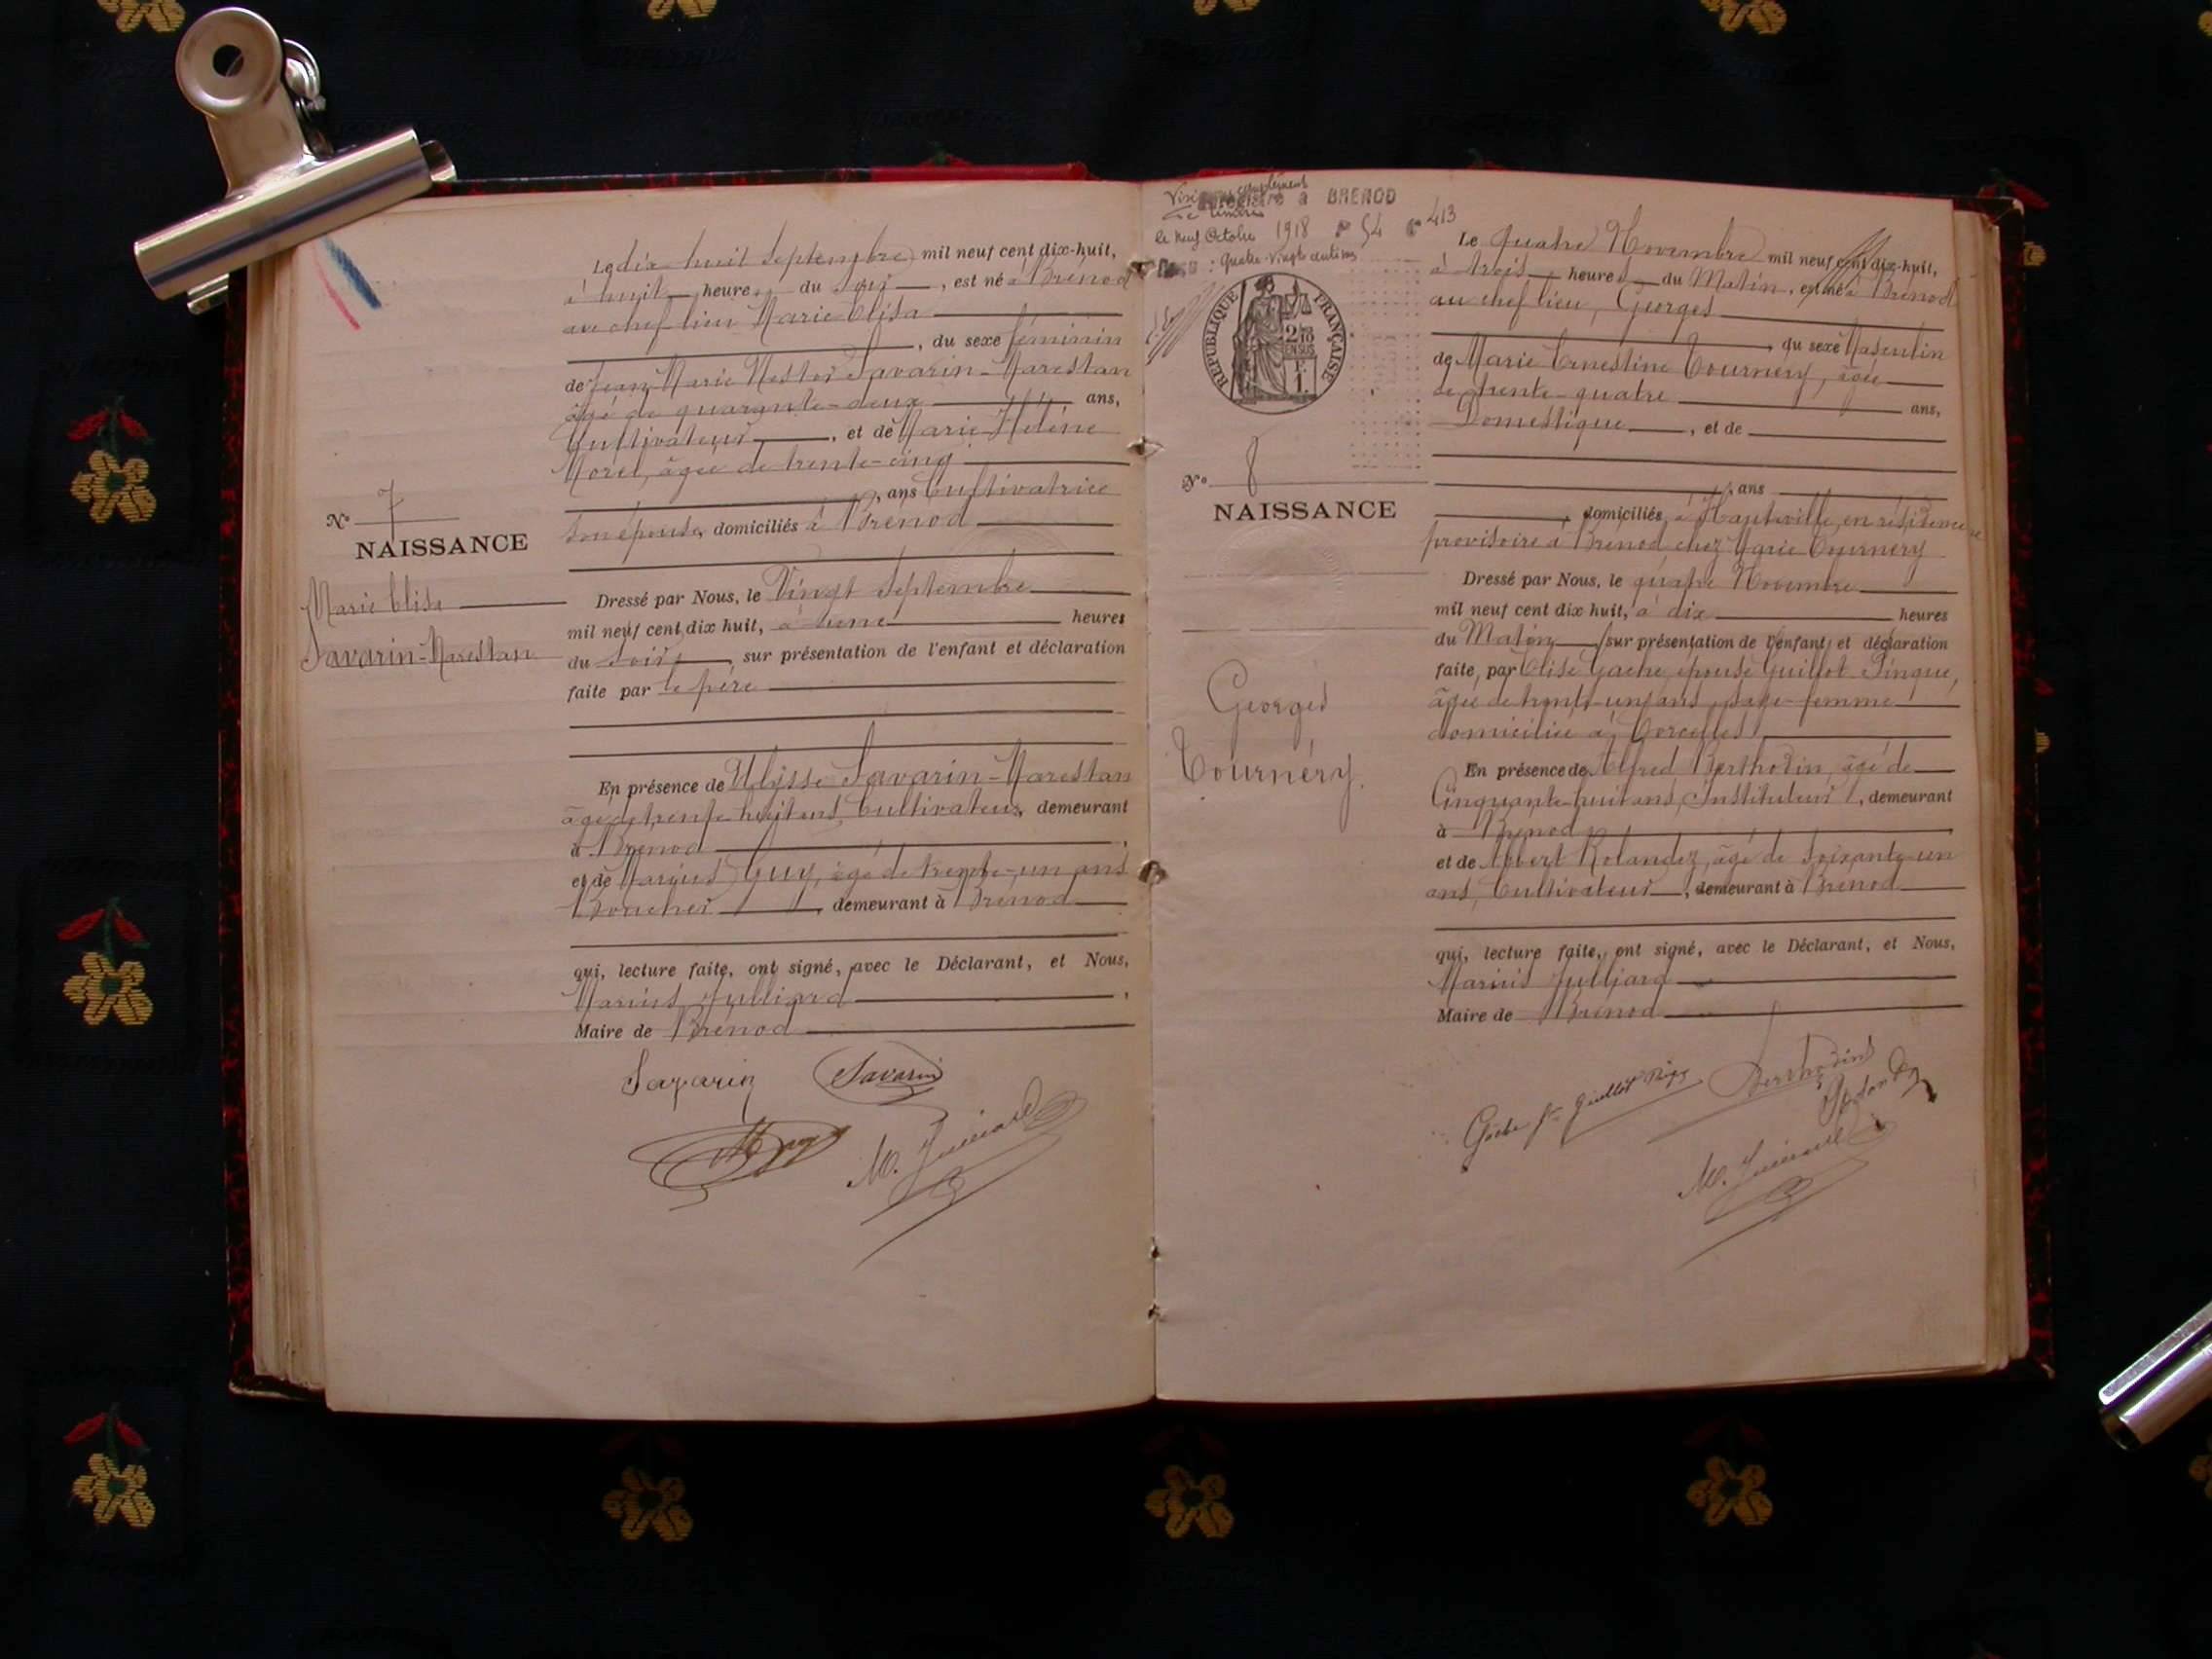 N° 7
NAISSANCE
Marie Elisa
Savarin-Marestan
Le dix-huit Septembre mil neuf cent dix-huit,
à huit heures du soir, est né à Brénod
au chef lieu Marie Elisa
, du sexe féminin
de Jean Marie Nestor Savarin-Marestan
âgé de quarante-deux ans,
Cultivateur, et de Marie Hélène
Morel, âgée de trente-cinq
, ans Cultivatrice
son épouse, domiciliés à Brénod
Dressé par Nous, le Vingt Septembre
mil neuf cent dix huit, à une heures
du soir, sur présentation de l'enfant et déclaration
faite par le père
En présence de Ulysse Savarin-Marestan
âgé de trente huit ans, Cultivateur, demeurant
à Brénod
et de Marius Guy, âgé de trente-un ans
Boucher, demeurant à Brénod
qui, lecture faite, ont signé, avec le Déclarant, et Nous,
Marius Julliard,
Maire de Brénod
Savarin Savarin
M. Julliard
complément
de timbre à BRENOD
le neuf Octobre 1918 54 413
: quatre-vingts centimes
RÉPUBLIQUE FRANÇAISE
2/10
EN SUS
1 F.
N° 8
NAISSANCE
Georges
Tournéry.
Le quatre Novembre mil neuf cent dix-huit,
à trois heures du Matin, est né à Brénod
au chef lieu, Georges
, du sexe Masculin
de Marie Ernestine Tournéry, âgée
de trente-quatre ans,
Domestique, et de
, ans
, domiciliés à Hauteville, en résidence
provisoire à Brénod chez Marie Tournéry
Dressé par Nous, le quatre Novembre
mil neuf cent dix huit, à dix heures
du Matin, sur présentation de l'enfant et déclaration
faite, par Elise Gache, épouse Guillot Pingue,
âgée de trente-un ans, sage-femme
domiciliée à Corcelles
En présence de Alfred Berthodin, âgé de
Cinquante-huit ans, Instituteur, demeurant
à Brénod
et de Albert Rolandez, âgé de soixante-un
ans, Cultivateur, demeurant à Brénod
qui, lecture faite, ont signé, avec le Déclarant, et Nous,
Marius Julliard
Maire de Brénod
Gache fe Guillot Berthodin
Rolandez
M. Julliard